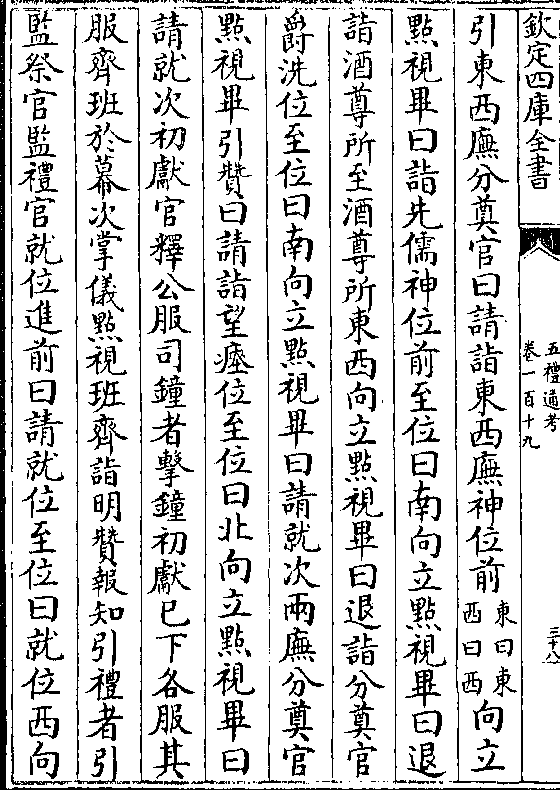 欽定四庫全書
五禮通考
卷一百十九
三十八
引東西廡分奠官曰請詣東西廡神位前東曰東西曰西向立
點視畢曰詣先儒神位前至位曰南向立點視畢曰退
詣酒尊所至酒尊所東西向立點視畢曰退詣分奠官
爵洗位至位曰南向立點視畢曰請就次兩廡分奠官
點視畢引贊曰請詣望瘞位至位曰北向立點視畢曰
請就次初獻官釋公服司鐘者擊鐘初獻已下各服其
服齊班於幕次掌儀點視班齊詣明贊報知引禮者引
監祭官監禮官就位進前曰請就位至位曰就位西向